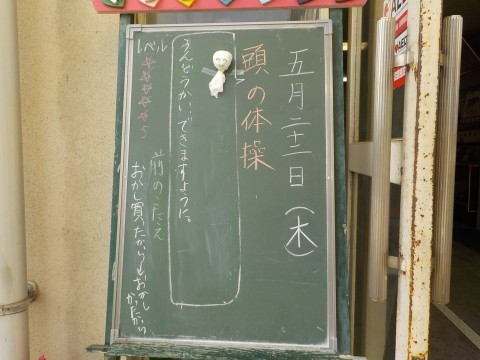 五月二十二日(木)
頭の体操
うんどうかいできますように。
レベル ☆☆☆☆☆5
前のこたえ
おかし買ったから↓おかし
かったから
AED